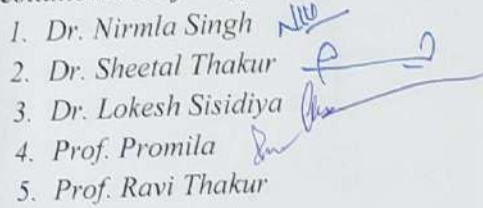 1. Dr. Nirmla Singh
2. Dr. Sheetal Thakur
3. Dr. Lokesh Sisidiya
4. Prof. Promila
5. Prof. Ravi Thakur